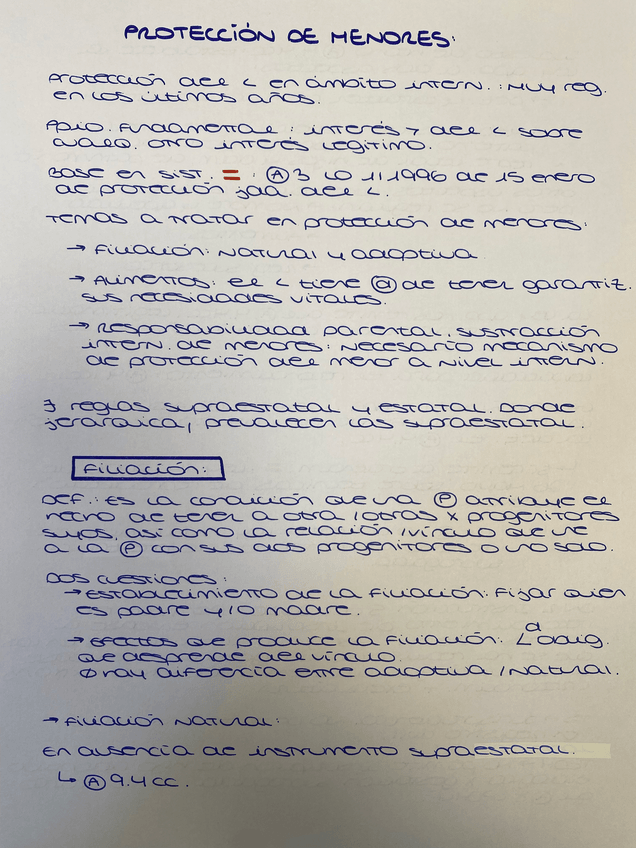 PROTECCIÓN DE MENORES:
Protección del < en ámbito intern.: muy reg.
en los últimos años.
Ppio. Fundamental: interés > del < sobre
cualq. otro interés legítimo.
Base en sist. = : Ⓐ 3 LO 1/1996 de 15 enero
de protección jdd. del <.
Temas a tratar en protección de menores:
→ Filiación: Natural y adoptiva
→ Alimentos: el < tiene ⓓ de tener garantiz.
sus necesidades vitales.
→ Responsabilidad parental. Sustracción
intern. de menores: Necesario mecanismo
de protección del menor a nivel intern.
∃ reglas supraestatal y estatal. Donde
jerárquica, prevalecen las supraestatal.
Filiación:
DEF.: Es la condición que una Ⓟ atribuye el
hecho de tener a otra/otras x progenitores
suyos, así como la relación/vínculo que une
a la Ⓟ con sus dos progenitores o uno solo.
Dos cuestiones:
→ Establecimiento de la filiación: Fijar quien
es padre y/o madre.
→ Efectos que produce la filiación: L d oblig.
que desprende del vínculo.
∅ hay diferencia entre adoptiva/natural.
→ Filiación Natural:
En ausencia de instrumento supraestatal.
↳ Ⓐ 9.4 CC.